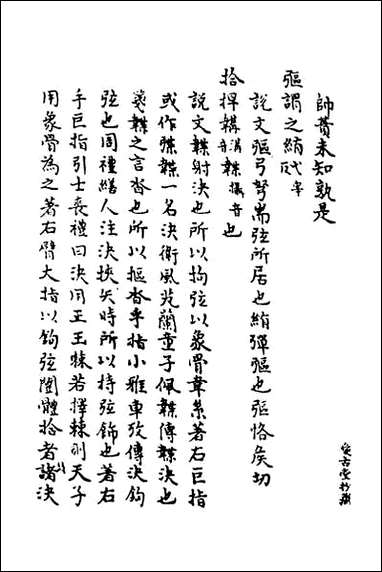 師 未知孰是
彄謂之
說文彄弓弩耑弦所居也 彈彄也彄恪侯切
拾捍韝溝韘攝音也
說文韘射決也所以拘弦以象骨韋系著右巨指
或作弽韘一名決衛風芄蘭童子佩韘傳韘決也
箋韘之言沓也所以摳沓手指小雅車攻傳決鉤
弦也周禮繕人注決挾矢時所以持弦飾也著右
手巨指引士喪禮曰決用王王棘若擇棘則天子
用象骨為之著右臂大指以鉤弦闓體拾者諸決
古堂抄藏